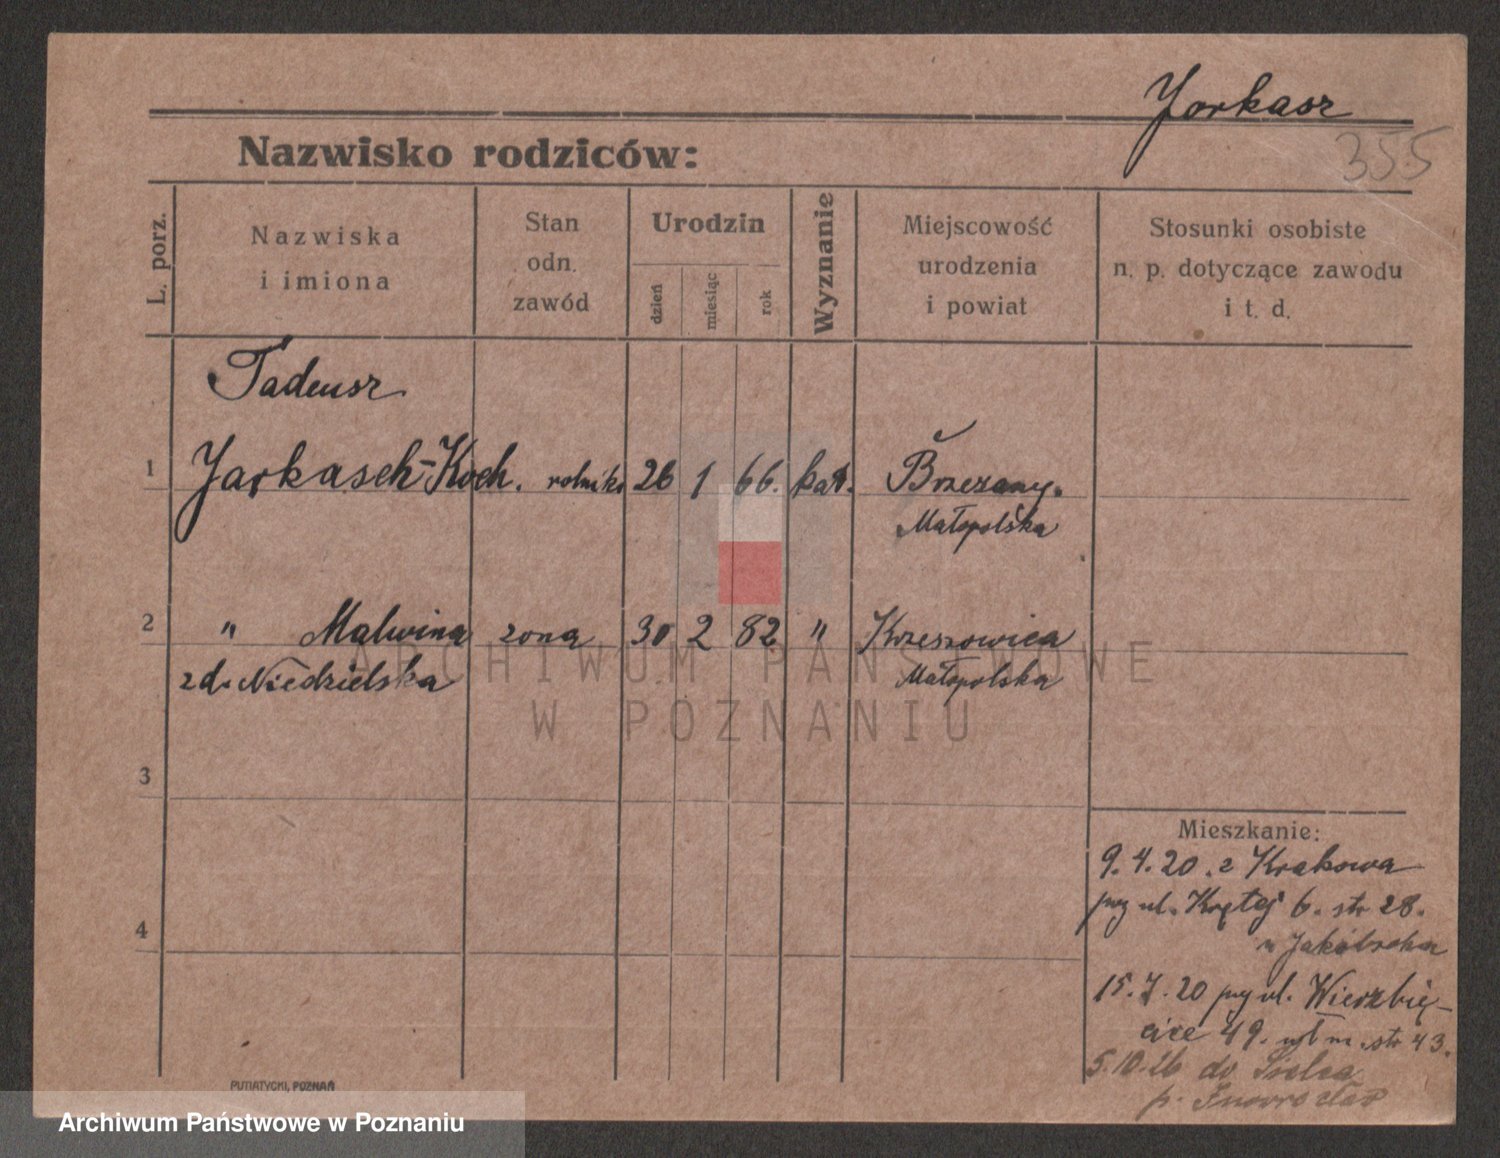 Jorkasz
355
Nazwisko rodziców:
L. porz.
Nazwiska
i imiona
Stan
odn.
zawód
Urodzin
dzień
miesiąc
rok
Wyznanie
Miejscowość
urodzenia
i powiat
Stosunki osobiste
n. p. dotyczące zawodu
i t. d.
Tadeusz
1 Jorkasch-Koch. rolnik 26 1 66. kat. Brzezany.
Małopolska
2 " Malwina zona 30 2 82 " Krzeszowica
zd. Niedzielska Małopolska
ARCHIWUM PAŃSTWOWE
W POZNANIU
3
4
Mieszkanie:
9.4.20. z Krakowa
przy ul. Krętej 6. str 28.
u Jakóbscha
15.7.20 przy ul. Wierzbię-
cice 49. wł m. str 43.
5.10.26 do
p. Inowrocław
PUTIATYCKI, POZNAŃ
Archiwum Państwowe w Poznaniu